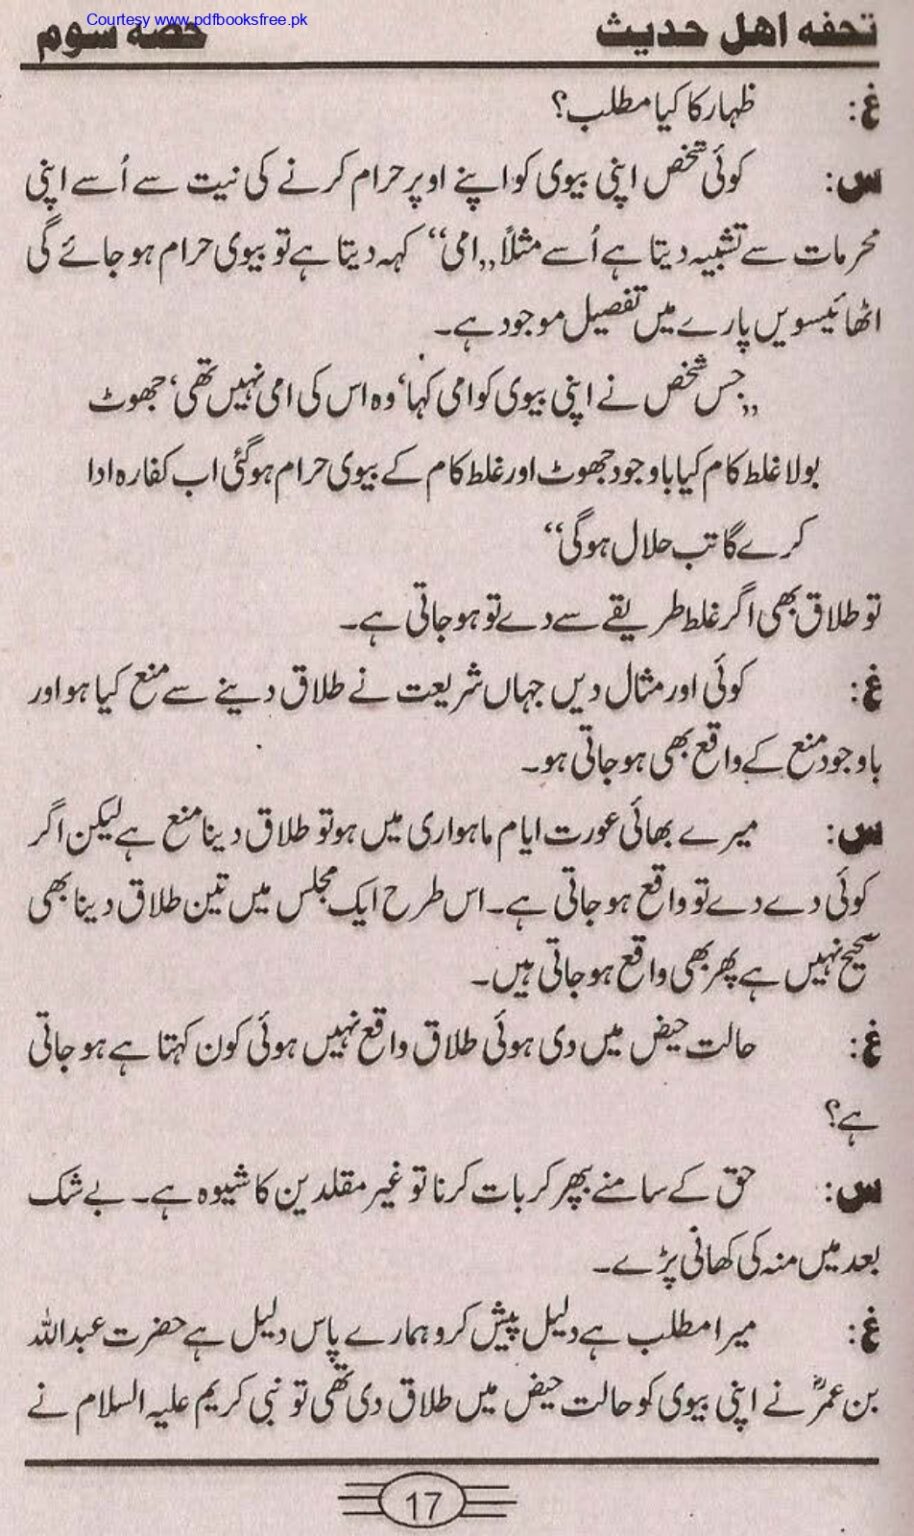 Courtesy www.pdfbooksfree.pk
تحفہ اهل حدیث حصہ سوم
غ: ظہار کا کیا مطلب؟
س: کوئی شخص اپنی بیوی کو اپنے اوپر حرام کرنے کی نیت سے اُسے اپنی
محرمات سے تشبیہ دیتا ہے اُسے مثلاً ,,امی‘‘ کہہ دیتا ہے تو بیوی حرام ہو جائے گی
اٹھائیسویں پارے میں تفصیل موجود ہے۔
,,جس شخص نے اپنی بیوی کو امی کہا‘ وہ اس کی امی نہیں تھی‘ جھوٹ
بولا غلط کام کیا باوجود جھوٹ اور غلط کام کے بیوی حرام ہوگئی اب کفارہ ادا
کرے گا تب حلال ہوگی‘‘
تو طلاق بھی اگر غلط طریقے سے دے تو ہو جاتی ہے۔
غ: کوئی اور مثال دیں جہاں شریعت نے طلاق دینے سے منع کیا ہو اور
باوجود منع کے واقع بھی ہو جاتی ہو۔
س: میرے بھائی عورت ایام ماہواری میں ہو تو طلاق دینا منع ہے لیکن اگر
کوئی دے دے تو واقع ہو جاتی ہے۔ اس طرح ایک مجلس میں تین طلاق دینا بھی
صحیح نہیں ہے پھر بھی واقع ہو جاتی ہیں۔
غ: حالت حیض میں دی ہوئی طلاق واقع نہیں ہوئی کون کہتا ہے ہو جاتی
ہے؟
س: حق کے سامنے بپھر کر بات کرنا تو غیر مقلدین کا شیوہ ہے۔ بے شک
بعد میں منہ کی کھانی پڑے۔
غ: میرا مطلب ہے دلیل پیش کرو ہمارے پاس دلیل ہے حضرت عبداللہ
بن عمرؓ نے اپنی بیوی کو حالت حیض میں طلاق دی تھی تو نبی کریم علیہ السلام نے
17